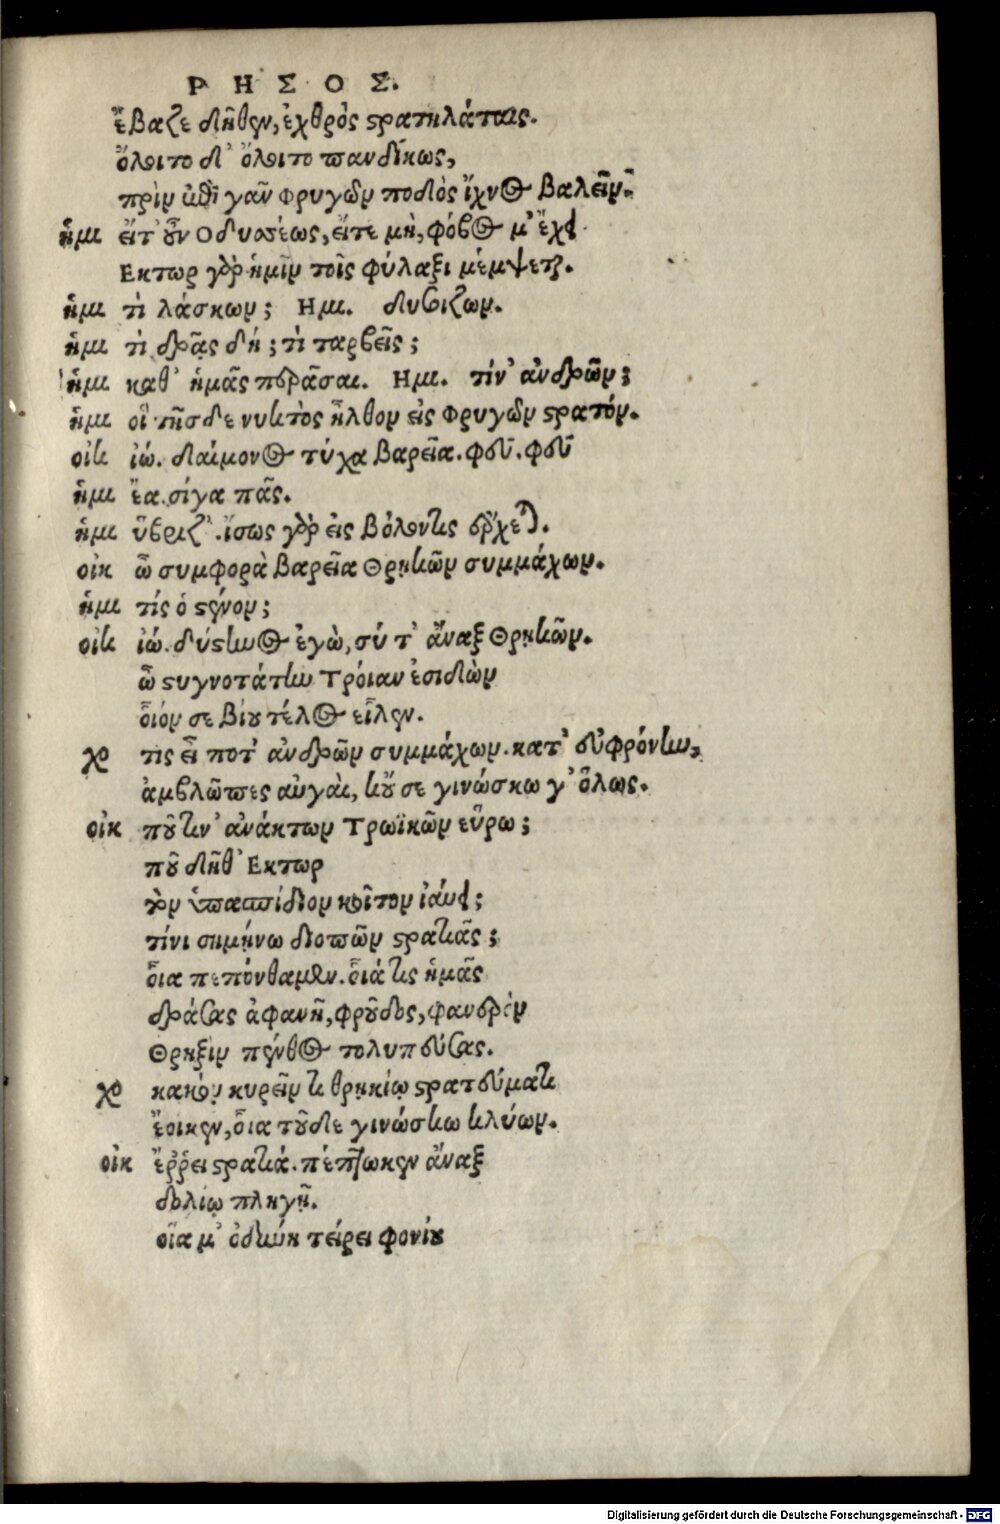 ΡΗΣΟΣ.
ἔβαζε δῆθεν, ἐχθρὸς στρατηλάταις.
ὄλοιτο δ' ὄλοιτο πανδίκως,
πρὶν ἐπὶ γᾶν Φρυγῶν ποδὸς ἴχνος βαλεῖν.
ἡμι εἴτ' οὖν Οδυσσέως, εἴτε μὴ, φόβος μ' ἔχει.
Εκτωρ γὰρ ἡμῖν τοῖς φύλαξι μέμψεται.
ἡμι τὶ λάσκων; Ημι. δυσίζων.
ἡμι τὶ δρᾷς δή; τὶ ταρβεῖς;
ἡμι καθ' ἡμᾶς περᾶσαι. Ημι. τίν' ἀνδρῶν;
ἡμι οἳ τῆσδε νυκτὸς ἦλθον εἰς Φρυγῶν στρατόν.
οἰκ ἰώ. δαίμονος τύχα βαρεῖα. φεῦ. φεῦ
ἡμι ἔα. σίγα πᾶς.
ἡμι ὕβριζ'. ἴσως γὰρ εἰς βόλον τις ἔρχεται.
οἰκ ὦ συμφορὰ βαρεῖα Θρῃκῶν συμμάχων.
ἡμι τίς ὁ στένων;
οἰκ ἰώ. δύστηνος ἐγὼ, σύ τ' ἄναξ Θρῃκῶν.
ὦ στυγνοτάτην Τρόιαν ἐσιδὼν
οἷόν σε βίου τέλος εἷλεν.
χο τὶς εἶ ποτ' ἀνδρῶν συμμάχων. κατ' εὐφρόνην,
ἀμβλῶπες αὐγαὶ, κοὔ σε γινώσκω γ' ὅλως.
οἰκ ποῦ τιν' ἀνάκτων Τρωϊκῶν εὕρω;
ποῦ δῆθ' Εκτωρ
τὸν ὑπασπίδιον κοῖτον ἰαύει;
τίνι σημήνω διοπῶν στρατιᾶς;
οἷα πεπόνθαμεν. οἷά τις ἡμᾶς
δράσας ἀφανῆ, φροῦδος, φανερὸν
Θρῃξὶν πένθος τολυπεύσας.
χο κακὸν κυρεῖν τι θρῃκίῳ στρατεύματι
ἔοικεν, οἷα τοῦδε γινώσκω κλύων.
οἰκ ἔῤῥει στρατιά. πέπτωκεν ἄναξ
δολίῳ πληγῇ.
οἵα μ' ὀδύνη τείρει φονίου
Digitalisierung gefördert durch die Deutsche Forschungsgemeinschaft - DFG